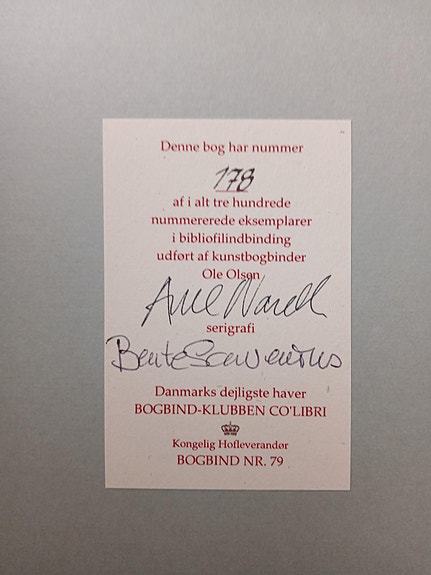 Denne bog har nummer
178
af i alt tre hundrede
nummererede eksemplarer
i bibliofilindbinding
udført af kunstbogbinder
Ole Olsen
serigrafi
Bente Scavenius
Danmarks dejligste haver
BOGBIND-KLUBBEN CO'LIBRI
Kongelig Hofleverandør
BOGBIND NR. 79